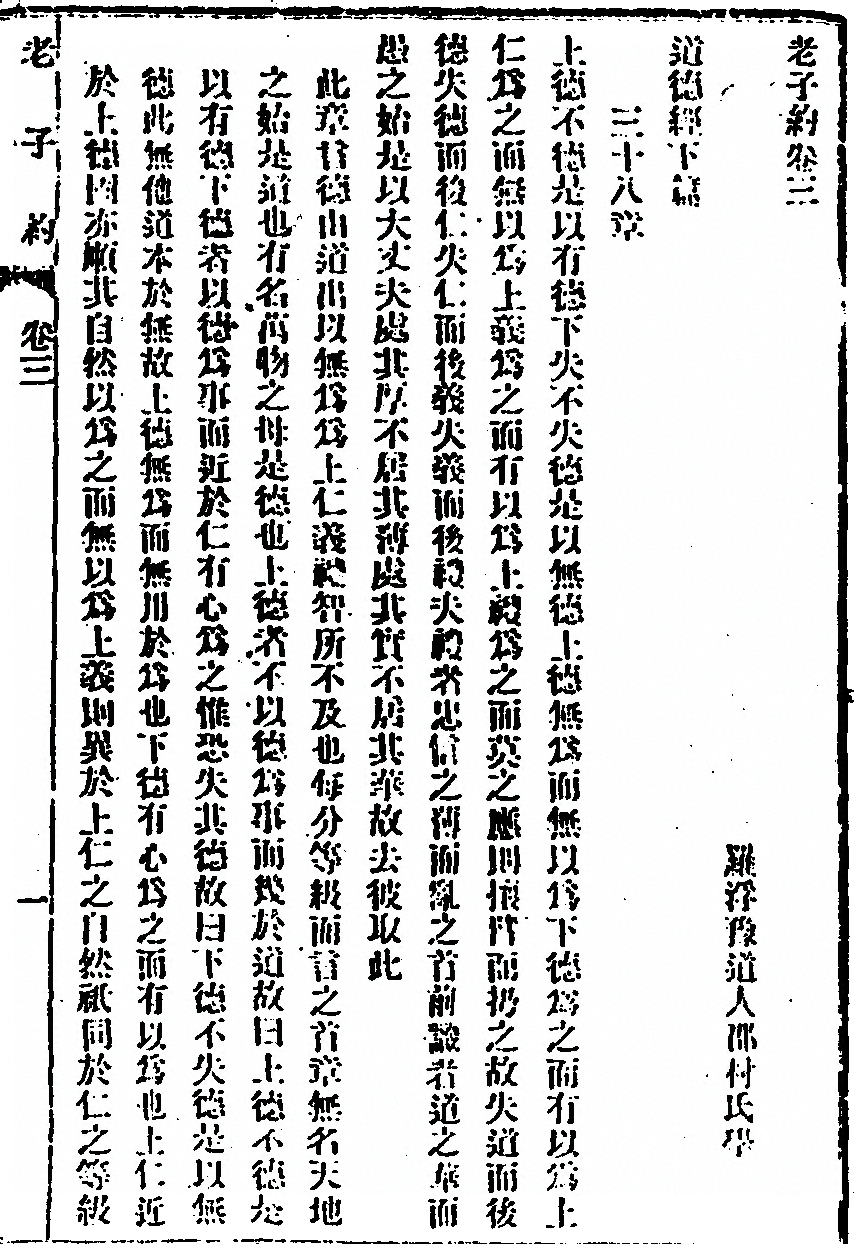 老子約卷三
羅浮豫道人邵村氏學
道德經下篇
三十八章
上德不德是以有德下失不失德是以無德上德無爲而無以爲下德爲之而有以爲上
仁爲之而無以爲上義爲之而有以爲上禮爲之而莫之應則攘臂而扔之故失道而後
德失德而後仁失仁而後義失義而後禮夫禮者忠信之薄而亂之首前識者道之華而
愚之始是以大丈夫處其厚不居其薄處其實不居其華故去彼取此
此章言德由道出以無爲爲上仁義禮智所不及也每分等級而言之首章無名天地
之始是道也有名萬物之母是德也上德者不以德爲事而幾於道故曰上德不德是
以有德下德者以德爲事而近於仁有心爲之惟恐失其德故曰下德不失德是以無
德此無他道本於無故上德無爲而無用於爲也下德有心爲之而有以爲也上仁近
於上德因亦順其自然以爲之而無以爲上義則異於上仁之自然祇同於仁之等級
老子約 卷三 一